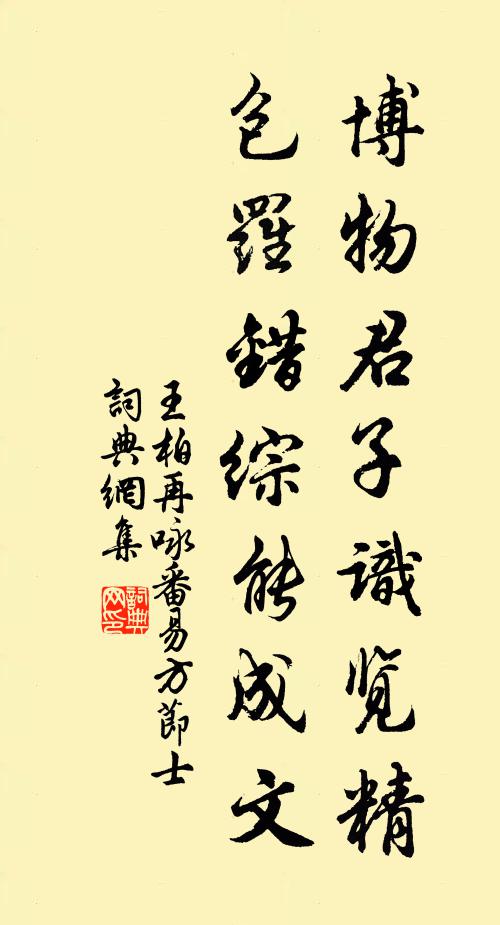 博物君子識览精
包羅錯综能成文
王柏再咏番易方節士
詞典網集
詞典网印